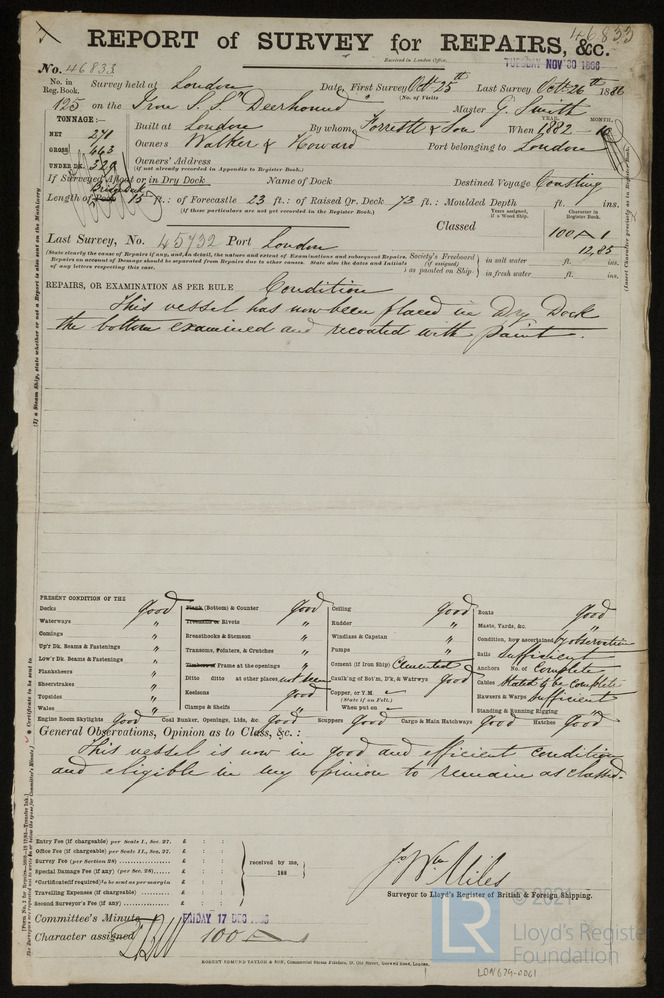 46833
REPORT of SURVEY for REPAIRS, &c.
No. 46833
Received in London Office,
TUESDAY NOV 30 1886
No. in Reg. Book. Survey held at London Date, First Survey Oct 25th Last Survey Oct 26th 1886
(No. of Visits
125 on the Iron S.S. "Deerhound" Master G. Smith
TONNAGE:— Built at London By whom Forrestt & Son When 1882 - 10
YEAR. MONTH.
NET 271
GROSS 463 Owners Walker & Howard Port belonging to London
UNDER DK. 329 Owners' Address
(if not already recorded in Appendix to Register Book.)
If Surveyed Afloat or in Dry Dock Name of Dock Destined Voyage Coasting
Length of Poop Bridge Deck 15 ft.: of Forecastle 23 ft.: of Raised Qr. Deck 73 ft.: Moulded Depth ft. ins.
(if these particulars are not yet recorded in the Register Book.)
Years assigned, if a Wood Ship. Character in Register Book.
Classed 100 A 1
Last Survey, No. 45732 Port London 12,85
(State clearly the cause of Repairs if any, and, in detail, the nature and extent of Examinations and subsequent Repairs. Society's Freeboard in salt water ft. ins.
Repairs on account of Damage should be separated from Repairs due to other causes. State also the dates and Initials (if assigned)
of any letters respecting this case. as painted on Ship. in fresh water ft. ins.
REPAIRS, OR EXAMINATION AS PER RULE Condition
This vessel has now been placed in Dry Dock
the bottom examined and recoated with paint.
PRESENT CONDITION OF THE
Decks Good
Waterways "
Comings "
Up'r Dk. Beams & Fastenings "
Low'r Dk. Beams & Fastenings "
Planksheers "
Sheerstrakes "
Topsides "
Wales "
Engine Room Skylights Good
Plank (Bottom) & Counter Good
Treenails or Rivets "
Breasthooks & Stemson "
Transoms, Pointers, & Crutches "
Timbers or Frame at the openings "
Ditto ditto at other places not seen
Keelsons Good
Clamps & Shelfs "
Coal Bunker, Openings, Lids, &c. Good
Ceiling Good
Rudder "
Windlass & Capstan "
Pumps "
Cement (if Iron Ship) Cemented
Caulk'ng of Bot'm, D'k, & Watrwys Good
Copper, or Y.M.
(State if on Felt.)
When put on
Scuppers Good Cargo & Main Hatchways Good Hatches Good
Boats Good
Masts, Yards, &c. "
Condition, how ascertained by observation
Sails Sufficient
Anchors No. of Complete
Cables Stated to be complete
Hawsers & Warps Sufficient
Standing & Running Rigging "
General Observations, Opinion as to Class, &c.:
This vessel is now in good and efficient condition
and eligible in my opinion to remain as classed.
Entry Fee (if chargeable) per Scale I., Sec. 27. £ : :
Office Fee (if chargeable) per Scale II., Sec. 27. £ : :
Survey Fee (per Section 28) £ : :
Special Damage Fee (if any) (per Sec. 28) £ : :
*Certificate (if required) to be sent as per margin £ : :
Travelling Expenses (if chargeable) £ : :
Second Surveyor's Fee (if any) £ : :
received by me,
188
Jo. Wm. Miles
Surveyor to Lloyd's Register of British & Foreign Shipping.
Committee's Minute FRIDAY 17 DEC 1886
Character assigned 100 A 1
ROBERT EDMUND TAYLOR & SON, Commercial Steam Printers, 19, Old Street, Goswell Road, London.
LR
© 2021
Lloyd's Register
Foundation
LON679-0061